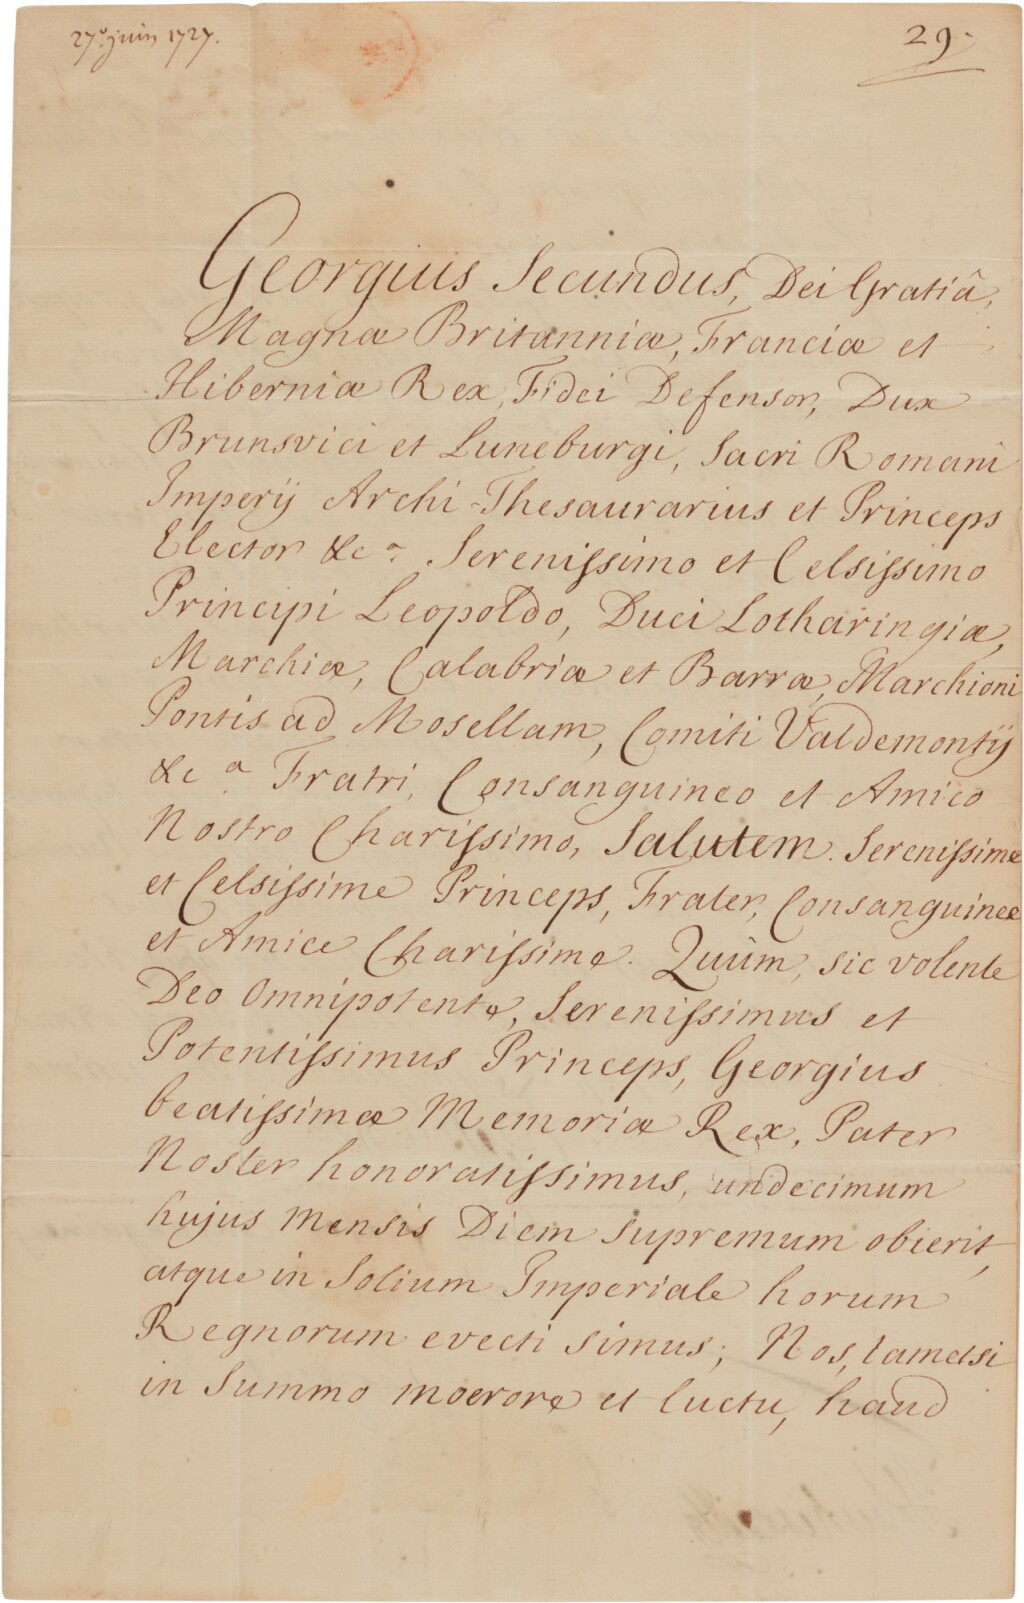 27.e juin 1727.
29.
Georgius Secundus, Dei Gratiâ,
Magnæ Britanniæ, Franciæ et
Hiberniæ Rex, Fidei Defensor, Dux
Brunsvici et Luneburgi, Sacri Romani
Imperij Archi-Thesaurarius et Princeps
Elector &c.a Serenissimo et Celsissimo
Principi Leopoldo, Duci Lotharingiæ,
Marchiæ, Calabriæ et Barræ, Marchioni
Pontis ad Mosellam, Comiti Valdemontij
&c.a Fratri, Consanguineo et Amico
Nostro Charissimo, Salutem. Serenissime
et Celsissime Princeps, Frater, Consanguinee
et Amice Charissime. Quùm, sic volente
Deo Omnipotente, Serenissimus et
Potentissimus Princeps, Georgius
beatissimæ Memoriæ Rex, Pater
Noster honoratissimus, undecimum
hujus Mensis Diem Supremum obierit,
atque in Solium Imperiale horum
Regnorum evecti simus; Nos, tametsi
in Summo moerore et luctu, haud